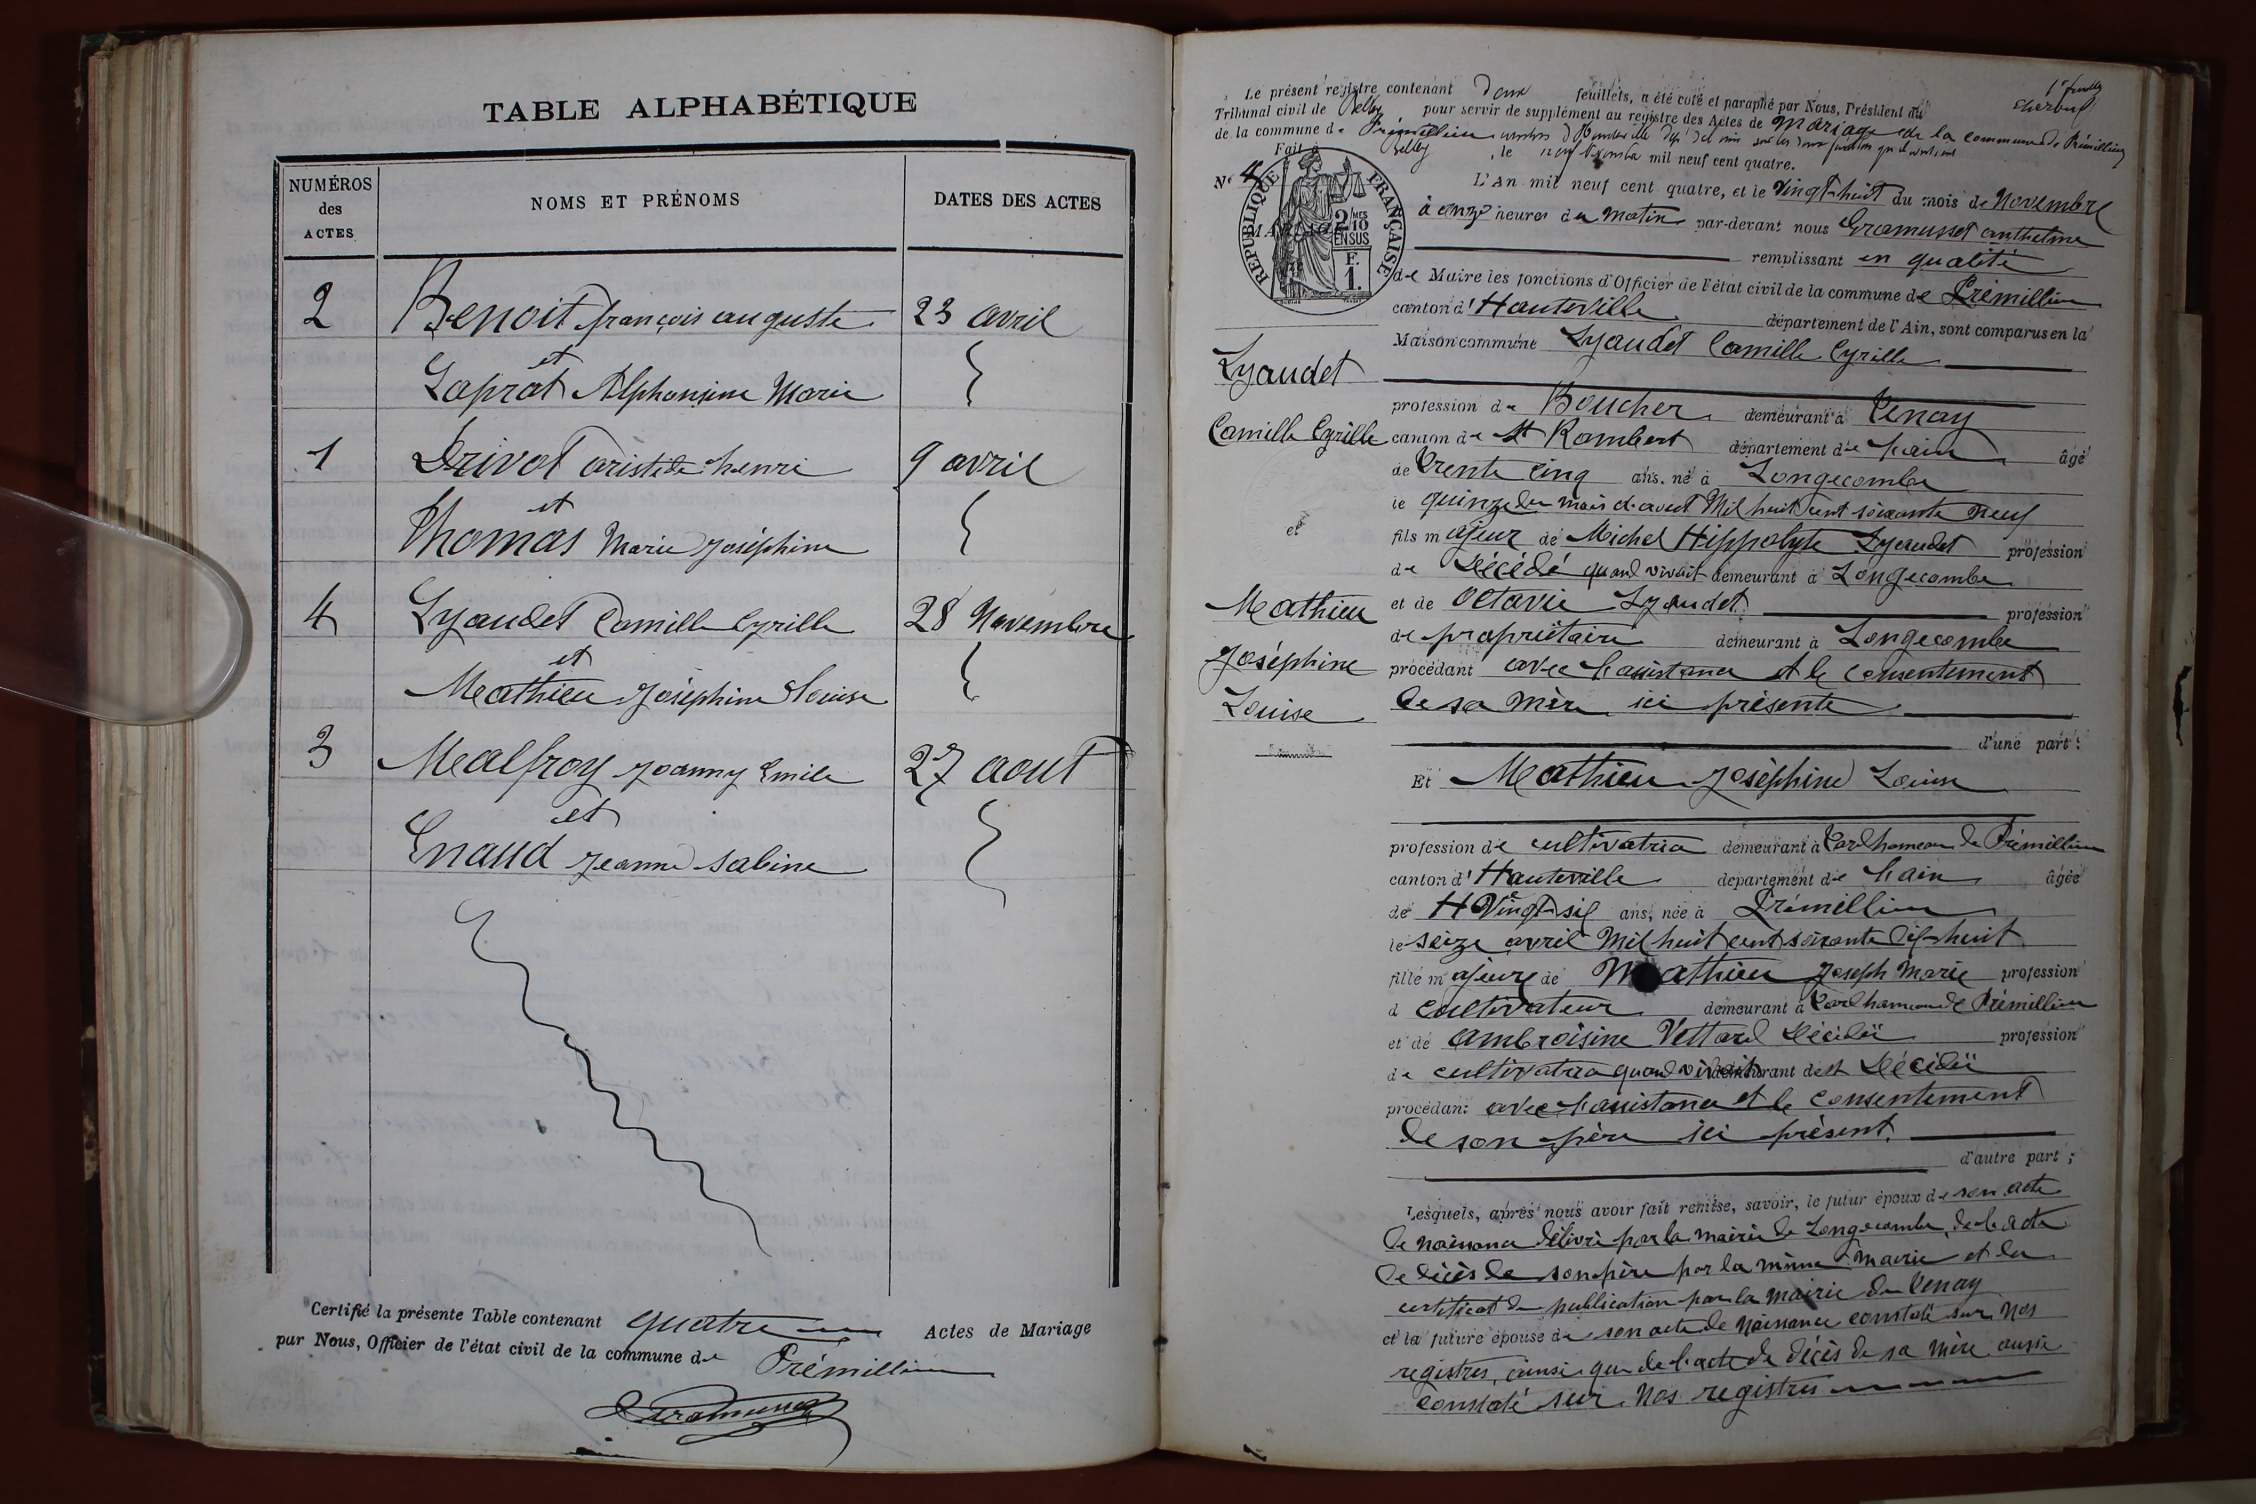 TABLE ALPHABÉTIQUE
NUMÉROS des ACTES
NOMS ET PRÉNOMS
DATES DES ACTES
2 Benoit françois auguste 23 avril
et
Laprat Alphonsine Marie
1 Drivot aristide henri 9 avril
et
Thomas Marie Joséphine
4 Lyaudet Camille Cyrille 28 Novembre
et
Mathieu Joséphine Louise
3 Mealfroy Joanny Emile 27 aout
et
Enaud Jeanne Sabine
Certifié la présente Table contenant quatre Actes de Mariage
par Nous, Officier de l'état civil de la commune de Prémillieu
Gramusset
1er feuillet
Le présent registre contenant Deux feuillets, a été coté et paraphé par Nous, Président du
Tribunal civil de Belley pour servir de supplément au registre des Actes de Mariage de la commune de Prémillieu
de la commune de Prémillieu canton d'Hauteville
Fait à Belley, le neuf Décembre mil neuf cent quatre.
No 4
MARIAGE
RÉPUBLIQUE FRANÇAISE
2/10MES
EN SUS
F.
1.
L'An mil neuf cent quatre, et le Vingt-huit du mois de Novembre
à onze heures du matin par-devant nous Gramusset anthelme
remplissant en qualité
de Maire les fonctions d'Officier de l'état civil de la commune de Prémillieu
canton d'Hauteville département de l'Ain, sont comparus en la
Maison commune Lyaudet Camille Cyrille
Lyaudet
Camille Cyrille
et
Mathieu
Joséphine
Louise
profession de Boucher demeurant à Tenay
canton de St Rambert département de l'ain âgé
de trente cinq ans, né à Longecombe
le quinze du mois d'aout Mil huit cent soixante neuf
fils majeur de Michel Hippolyte Lyaudet profession
de Décédé quand vivait demeurant à Longecombe
et de Octavie Lyaudet profession
de propriétaire demeurant à Longecombe
procédant avec l'assistance et le consentement
de sa mère ici présente
d'une part;
Et Mathieu Joséphine Louise
profession de cultivatrice demeurant à hameau de Prémillieu
canton d'Hauteville département de l'ain âgée
de Vingt-six ans, née à Prémillieu
le seize avril Mil huit cent soixante dix-huit
fille majeure de Mathieu Joseph Marie profession
d cultivateur demeurant à hameau de Prémillieu
et de Ambroisine Vettard Décédée profession
de cultivatrice quand vivait demeurant dest Décédée
procédant avec l'assistance et le consentement
de son père ici présent.
d'autre part;
Lesquels, après nous avoir fait remise, savoir, le futur époux de son acte
de naissance délivré par la mairie de Longecombe, de l'acte
de décès de son père par la même mairie et du
certificat de publication par la mairie de Tenay
et la future épouse de son acte de Naissance constaté sur Nos
registres, ainsi que de l'acte de décès de sa mère aussi
constaté sur Nos registres